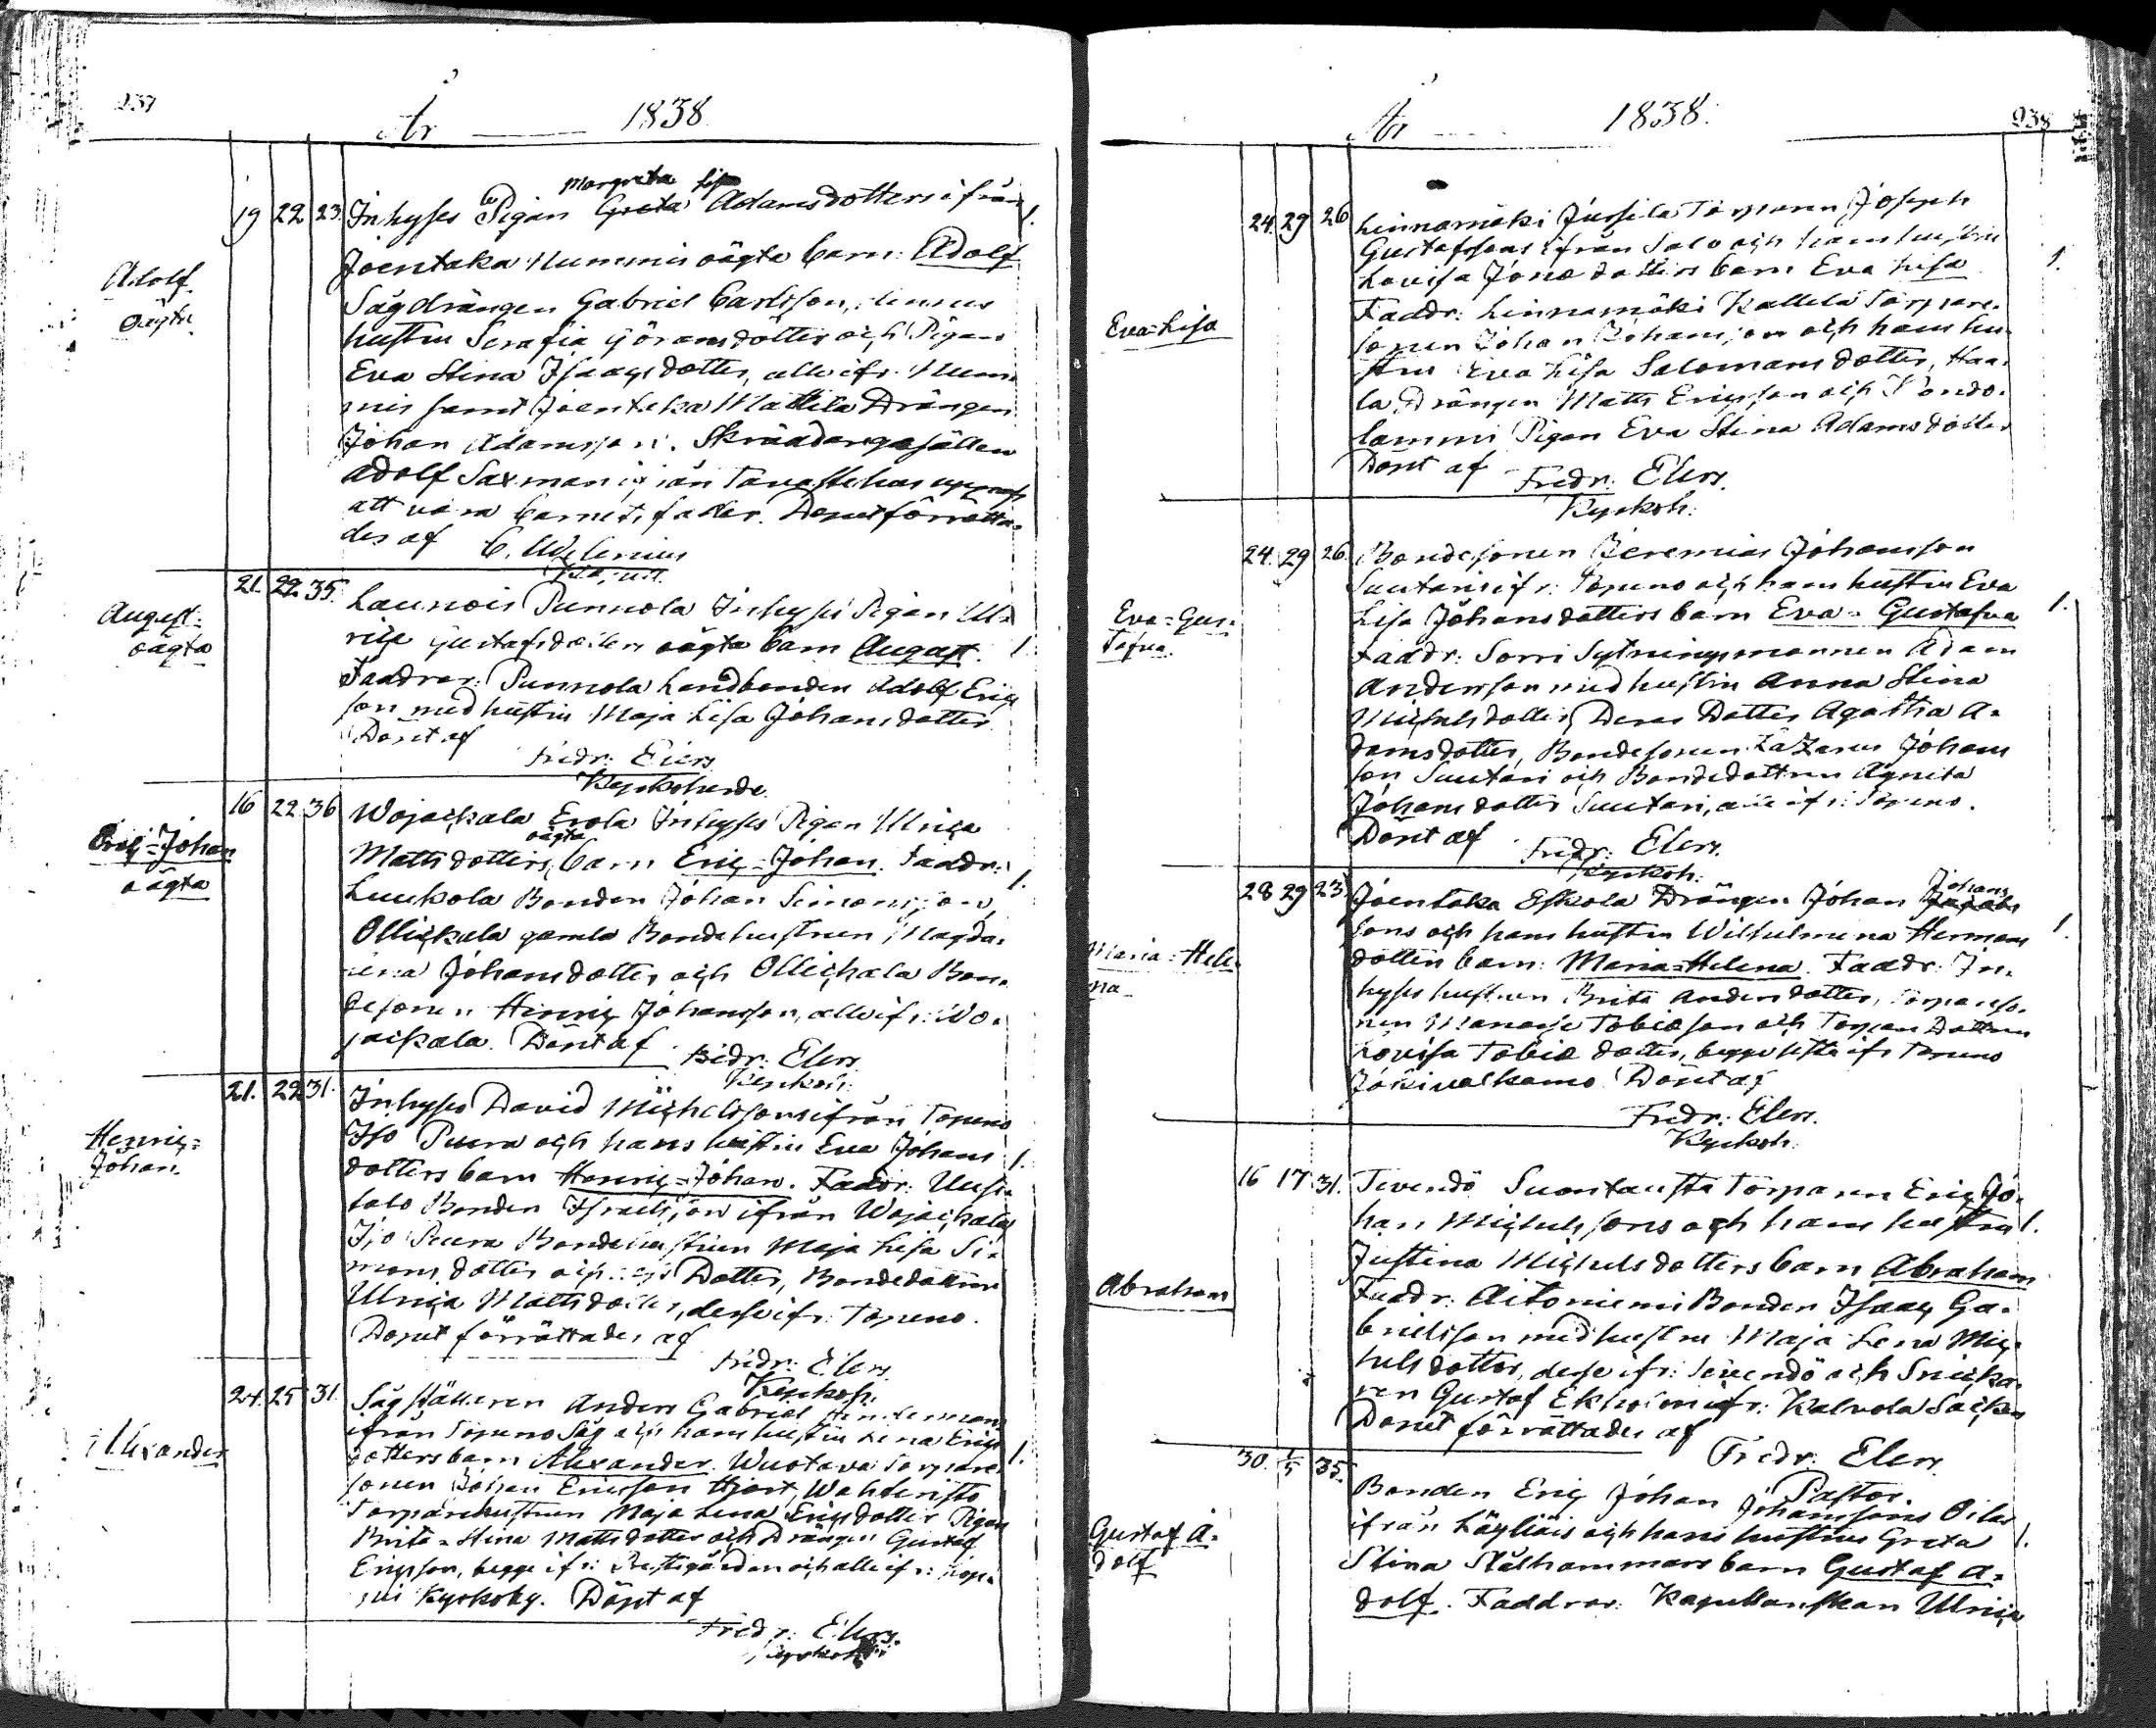 237
År 1838.
Margreta Lisa
19 22 23. Inhyses Pigan Greta Adamsdotters ifrån 1.
Joentaka Nummis oägta barn: Adolf
Adolf
oägta
Sågdrängen Gabriel Carlsson, hennes
hustru Serafia Göransdotter och Pigan
Eva Stina Isaacsdotter, alla ifr. Num-
mis samt Joentaka Mattila Drängen
Johan Adamsson. Skräddaregesällen
Adolf Saxman ifrån Tavastehus
att vara barnets fader. Doput förrätta-
des af C. Welenius
21. 22 35. Launois Punnola Inhyses Pigan Ul-
August
oägta
rica Gustafsdotters oägta barn August. 1.
Faddrar: Punnola Landbonden Adolf Eric
son med hustru Maja Lisa Johansdotter
Döpt af
Fredr: Elers
Kyrkoherde.
16 22 36 Wojackala Erola Inhyses Pigan Ulrica
oägta
Eric=Johan
oägta
Matts dotters barn Eric=Johan. Faddr: 1.
Luukola Bonden Johan Simonsson,
Ollickala gamla Bondehustrun Magda-
lena Johansdotter och Ollickala Bon-
desonen Henric Johansson, alla ifr: Wo-
jackala. Döpt af
Fredr: Elers
Kyrkoh:
21. 22 31. Inhyses David Michelssons ifrån Topeno
Henric=
Johan.
Iso Puura och hans hustru Eva Johans 1.
dotters barn Henric=Johan. Faddr: Uusi-
talo Bonden Israelsson ifrån Wojackala
Iso Puura Bondehustrun Maja Lisa Si-
mons dotter och Dotter, Bondedottren
Ulrica Mattsdotter, desse ifr: Topeno.
Doput förrättades af
Fredr: Elers.
Kyrkoh:
24. 25 31. Sågställaren Anders Gabriel
ifrån Topeno Såg och hans hustru Lena Erics
Alexander
dotters barn Alexander. Wuotava Torpare- 1.
sonen Johan Ericsson Hjort, Wahteristo
Torparehustrun Maja Lena Ericsdotter Pigan
Brita=Stina Mattsdotter och Drängen Gustaf
Ericsson, begge ifr: Prestegården och alla ifr: Lop-
pis Kyrkoby. Döpt af
Fredr: Elers.
Kyrkoh:
År 1838. 238
24. 29 26 Linnamäki Jussila Torparen Joseph
Gustafssons ifrån Salo och hans hustru
Lovisa Jonæ dotters barn Eva Lisa 1.
Eva=Lisa
Faddr: Linnamäki Kallela Torpare-
sonen Johan Johansson och hans hu-
stru Eva Lisa Salomonsdotter, Haa-
la Drängen Matts Ericsson och
lammi Pigan Eva Stina Adamsdotter
Döpt af Fredr: Elers.
Kyrkoh:
24. 29 26. Bondesonen Jeremias Johansson
Suutaris ifr: Topeno och hans hustru Eva
Eva=Gus-
tafva.
Lisa Johansdotters barn Eva=Gustafva 1.
Faddr: Sorri Sytningsmannen Adam
Andersson med hustru Anna Stina
Michelsdotter, Deras Dotter Agatha A-
damsdotter, Bondesonen Lazarus Johans
son Suutari och Bondedottren Agneta
Johansdotter Suutari, alla ifr: Topeno.
Döpt af Fredr: Elers.
Kyrkoh:
28 29 23. Joentaka Eskola Drängen Johan Johans
sons och hans hustru Wilhelmina Hermans 1.
Maria=Hele-
na
dotters barn: Maria=Helena. Faddr: In-
hyses hustrun Brita Andersdotter, Torpareso-
nen Manasse Tobiæson och Torpare Dottren
Lovisa Tobiæ dotter, begge sista ifr Topeno
Jokivalkamo. Döpt af
Fredr: Elers.
Kyrkoh:
16 17 31. Tevendö Suontausta Torparen Eric Jo-
han Michelssons och hans hustru 1.
Justina Michelsdotters barn Abraham
Abraham
Faddr: Aitoniemi Bonden Isaac Ga-
brielsson med hustru Maja Lena Mic-
helsdotter, desse ifr: Tevendö och Snicka-
ren Gustaf Ekholm ifr: Kalvola Socken
Doput förrättades af
Fredr: Elers.
Pastor.
30. 1/5 35. Bonden Eric Johan Johanssons Oilas
ifrån Läyliäis och hans hustrus Greta 1.
Gustaf A-
dolf
Stina Stålhammars barn Gustaf A-
dolf. Faddrar: Kapellanskan Ulrica